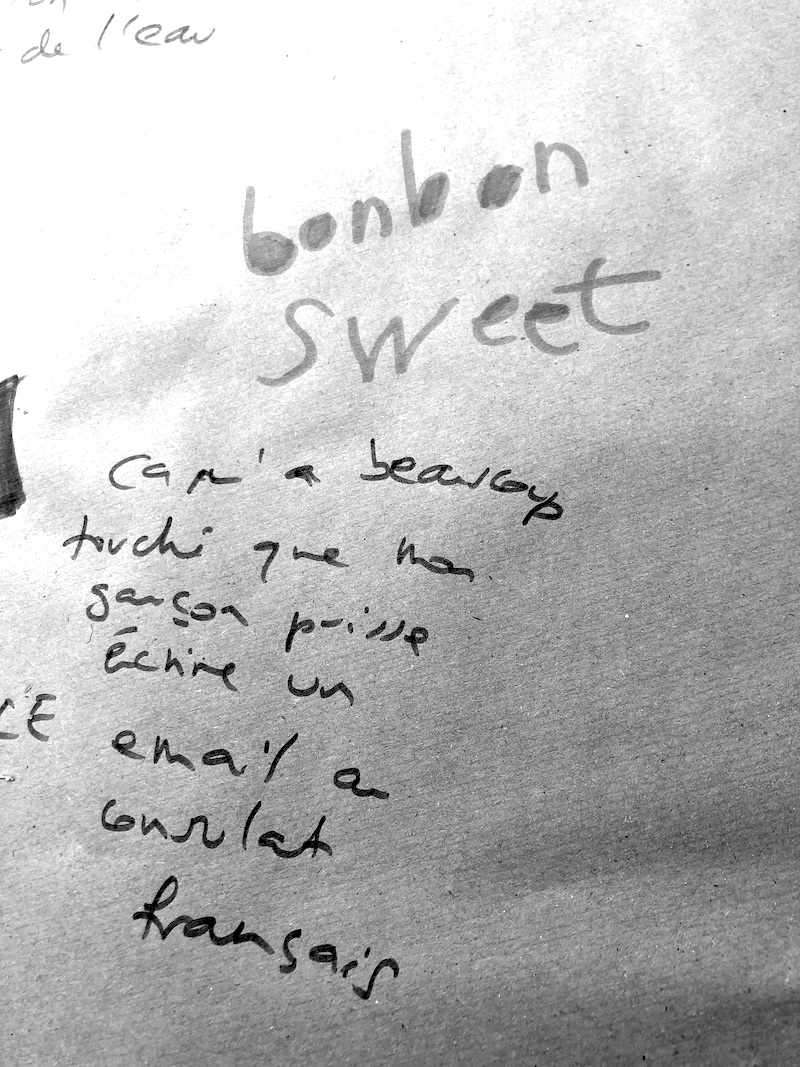 de l'eau
bonbon
sweet
ça m'a beaucoup
touché que mon
garçon puisse
écrire un
email au
consulat
français